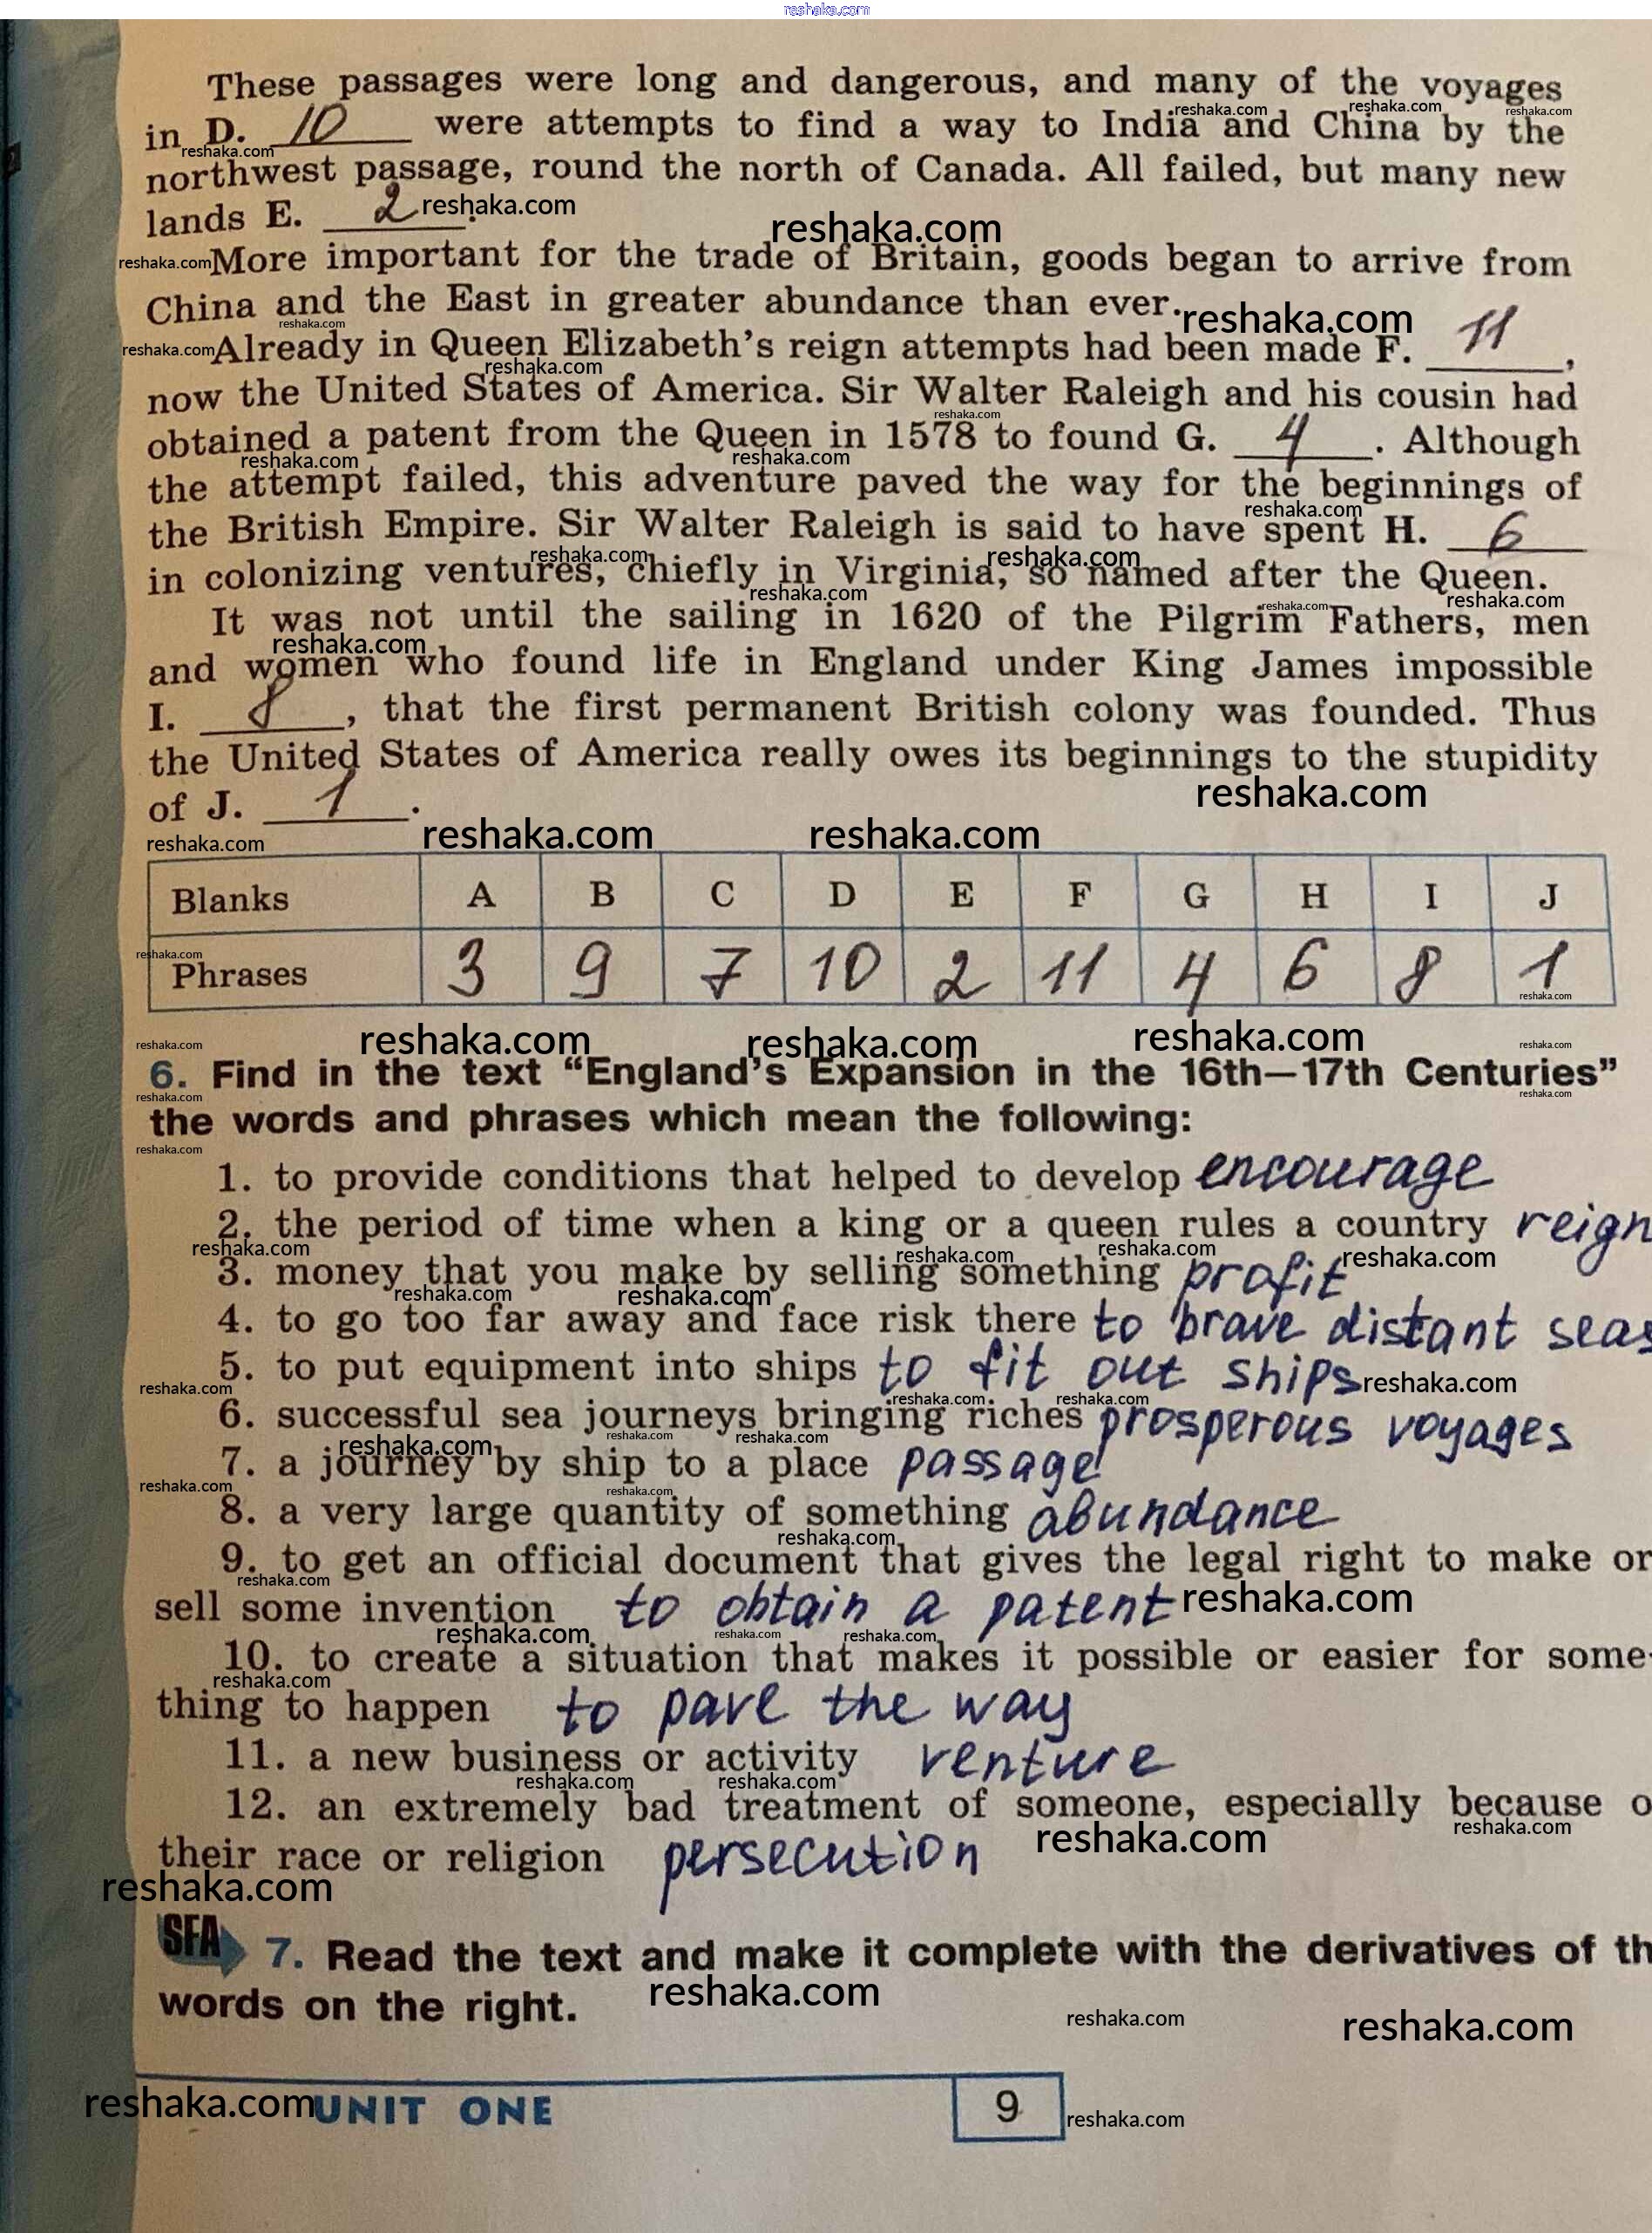 reshaka.com
These passages were long and dangerous, and many of the voyages
in D. 10 were attempts to find a way to India and China by the
northwest passage, round the north of Canada. All failed, but many new
lands E. 2.
More important for the trade of Britain, goods began to arrive from
China and the East in greater abundance than ever.
Already in Queen Elizabeth's reign attempts had been made F. 11,
now the United States of America. Sir Walter Raleigh and his cousin had
obtained a patent from the Queen in 1578 to found G. 4. Although
the attempt failed, this adventure paved the way for the beginnings of
the British Empire. Sir Walter Raleigh is said to have spent H. 6
in colonizing ventures, chiefly in Virginia, so named after the Queen.
It was not until the sailing in 1620 of the Pilgrim Fathers, men
and women who found life in England under King James impossible
I. 8, that the first permanent British colony was founded. Thus
the United States of America really owes its beginnings to the stupidity
of J. 1.
Blanks A B C D E F G H I J
Phrases 3 9 7 10 2 11 4 6 8 1
6. Find in the text “England's Expansion in the 16th—17th Centuries”
the words and phrases which mean the following:
1. to provide conditions that helped to develop encourage
2. the period of time when a king or a queen rules a country reign
3. money that you make by selling something profit
4. to go too far away and face risk there to brave distant seas
5. to put equipment into ships to fit out ships
6. successful sea journeys bringing riches prosperous voyages
7. a journey by ship to a place passage
8. a very large quantity of something abundance
9. to get an official document that gives the legal right to make or
sell some invention to obtain a patent
10. to create a situation that makes it possible or easier for some-
thing to happen to pave the way
11. a new business or activity venture
12. an extremely bad treatment of someone, especially because o
their race or religion persecution
SFA 7. Read the text and make it complete with the derivatives of th
words on the right.
UNIT ONE 9